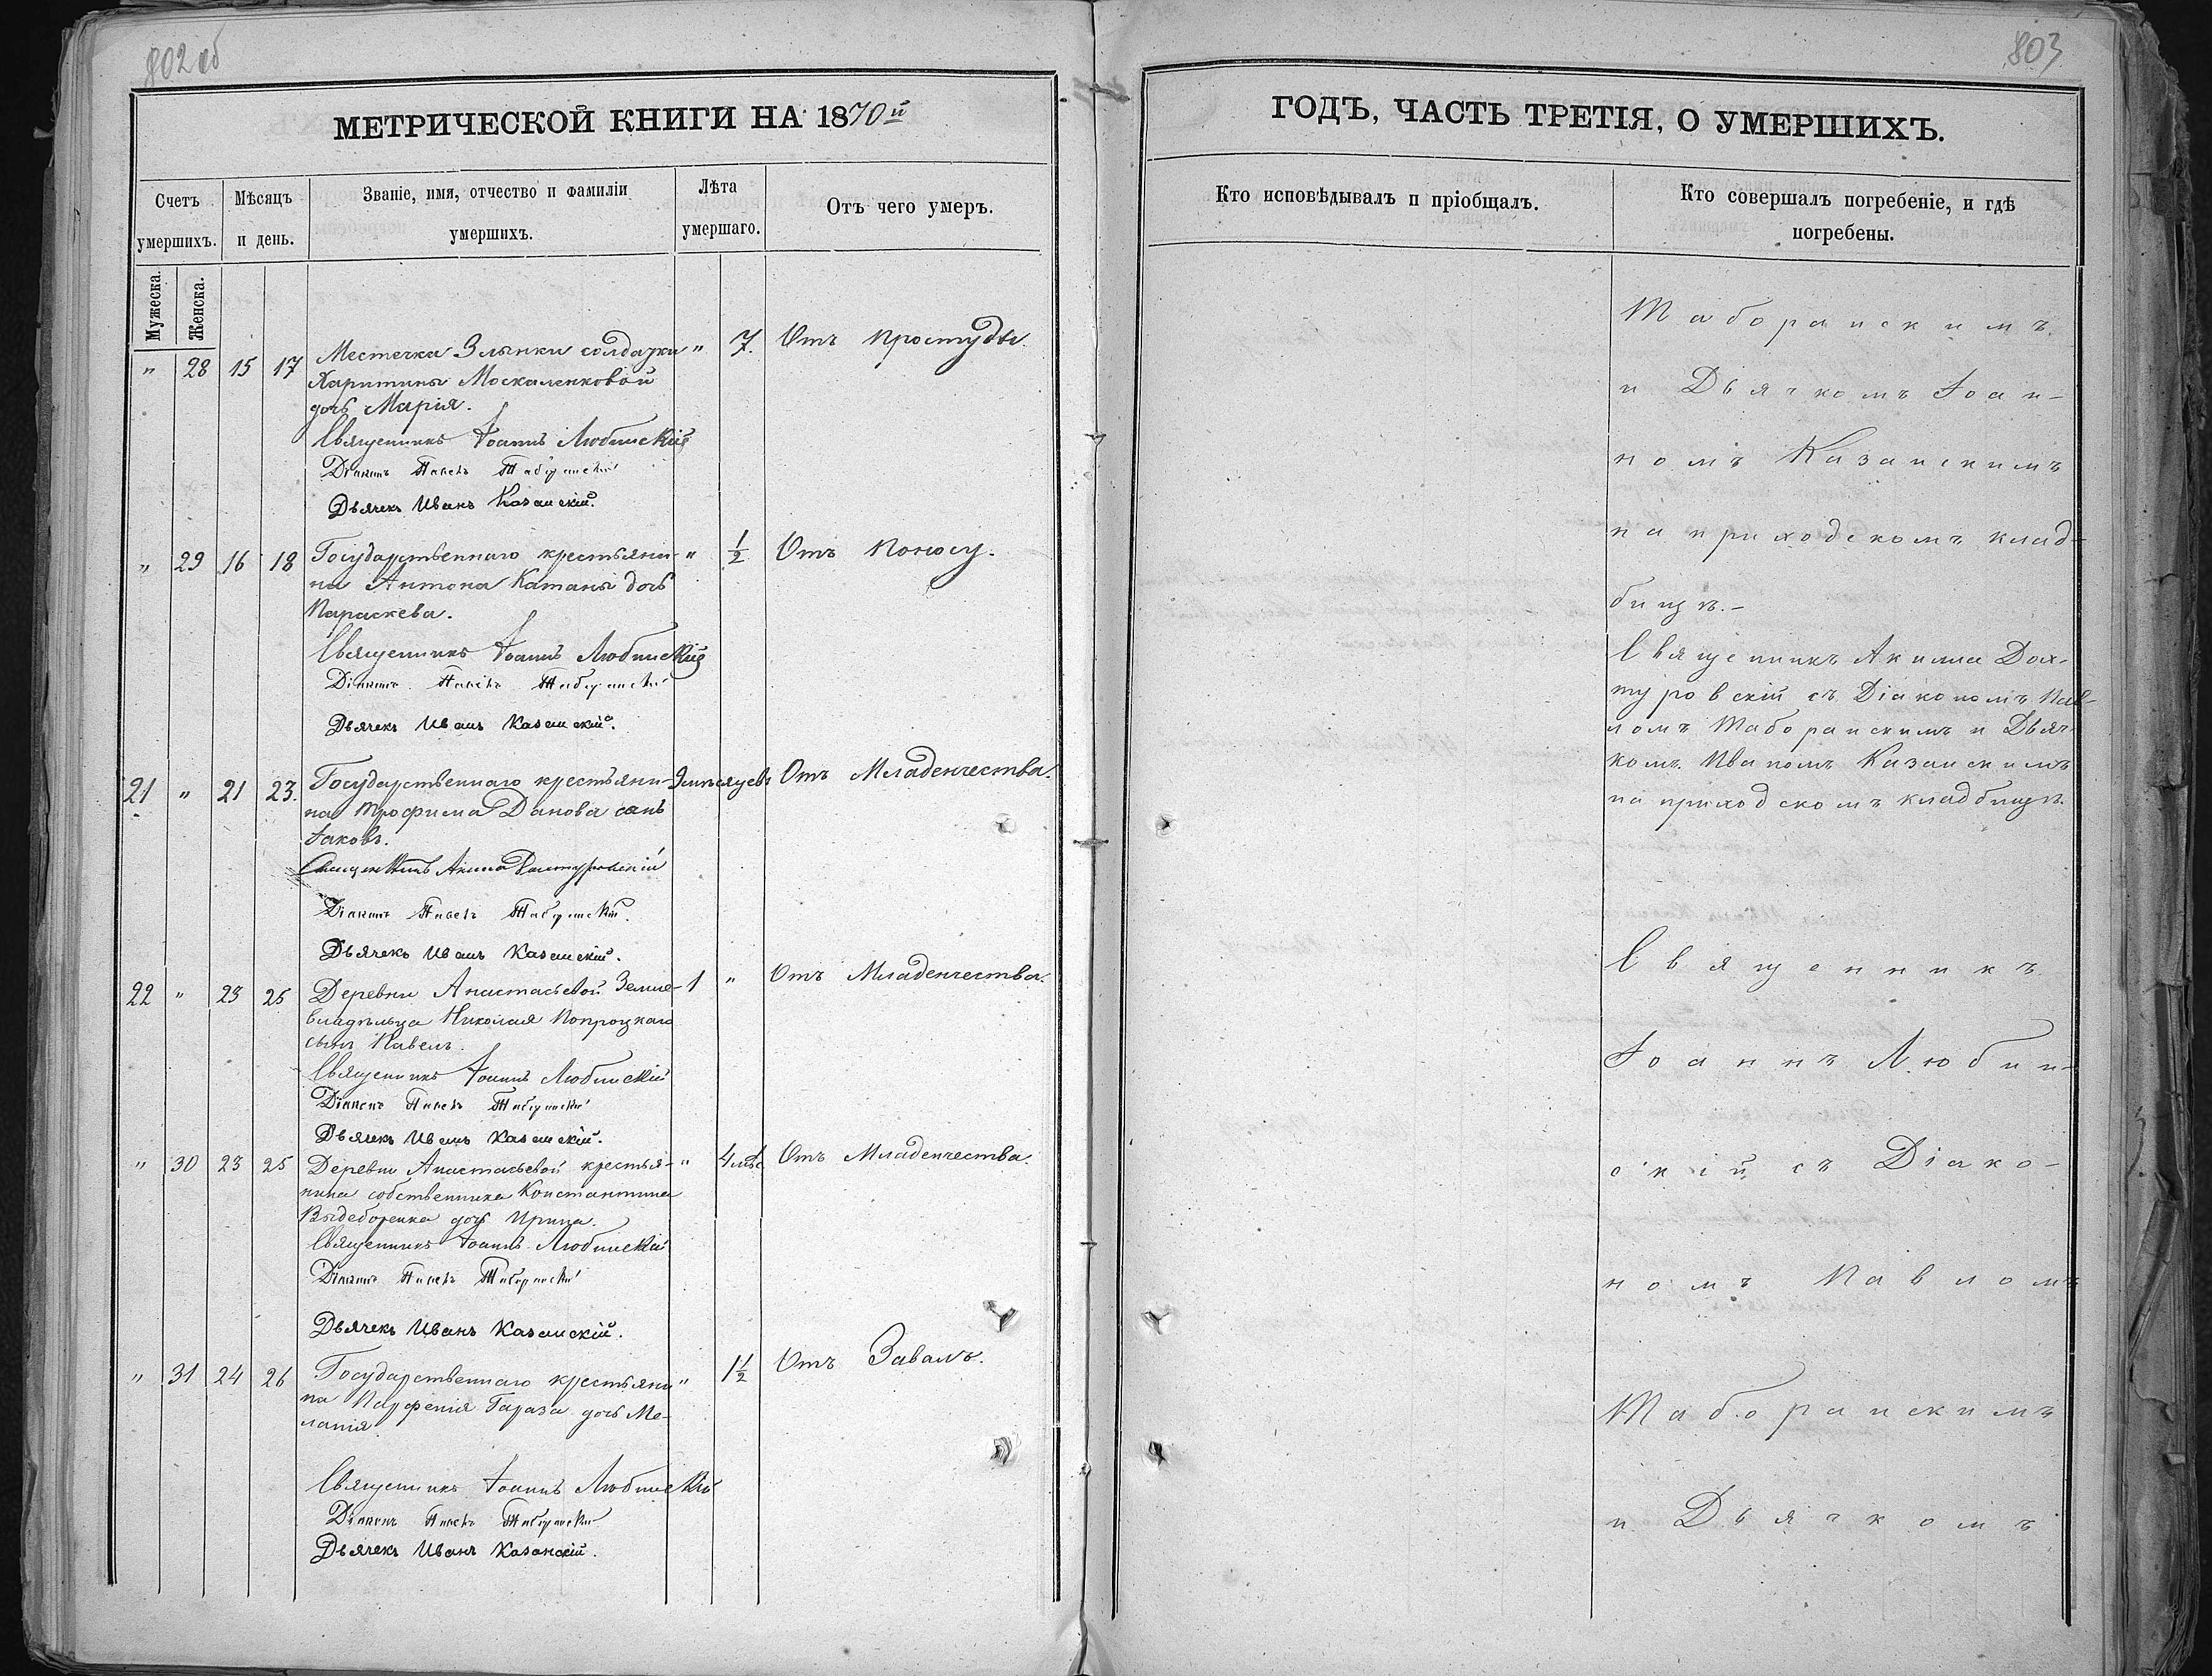 802 об
МЕТРИЧЕСКОЙ КНИГИ НА 1870й
Счетъ умершихъ.
Мѣсяцъ и день.
Званіе, имя, отчество и фамиліи умершихъ.
Лѣта умершаго.
Отъ чего умеръ.
Мужеска.
Женска.
" 28 15 17 Местечка Злынки солдатки " 7. Отъ простуды.
Харитины Москаленковой
дочь Марія.
Священникъ Іоаннъ Любинскій
Діаконъ Павелъ Таборанскій
Дьячекъ Иванъ Казанскій.
" 29 16 18 Государственнаго крестьяни- " 1/2 Отъ поносу.
на Антона Катаны дочь
Параскева.
Священникъ Іоаннъ Любинскій
Діаконъ Павелъ Таборанскій
Дьячекъ Иванъ Казанскій.
21 " 21 23. Государственнаго крестьяни- 9 мѣсяцевъ Отъ Младенчества.
на Трофима Данова сынъ
Іаковъ.
Священникъ Акила Дахтуровскій
Діаконъ Павелъ Таборанскій.
Дьячекъ Иванъ Казанскій.
22 " 23 25 Деревни Анастасьевой Земле- 1 " Отъ Младенчества.
владѣльца Николая Попроцкаго
сынъ Павелъ.
Священникъ Іоаннъ Любинскій
Діаконъ Павелъ Таборанскій
Дьячекъ Иванъ Казанскій.
" 30 23 25 Деревни Анастасьевой крестья- " 4 мѣс Отъ Младенчества.
нина собственника Константина
Выдеборенка дочь Ирина.
Священникъ Іоаннъ Любинскій
Діаконъ Павелъ Таборанскій
Дьячекъ Иванъ Казанскій.
" 31 24 26 Государственнаго крестьяни " 1 1/2 Отъ Заваль.
на Парфенія Гараза дочь Ме-
ланія
Священникъ Іоаннъ Любинскій
Діаконъ Павелъ Таборанскій
Дьячекъ Иванъ Казанскій.
803
ГОДЪ, ЧАСТЬ ТРЕТІЯ, О УМЕРШИХЪ.
Кто исповѣдывалъ и пріобщалъ.
Кто совершалъ погребеніе, и гдѣ
погребены.
Таборанскимъ
и Дьячкомъ Іоан-
номъ Казанскимъ
на приходскомъ клад-
бищѣ.-
Священникъ Акилла Дах-
туровскій съ Діакономъ Пав-
ломъ Таборанскимъ и Дьяч-
комъ Иваномъ Казанскимъ
на приходскомъ кладбищѣ.
Священникъ
Іоаннъ Любин-
скій съ Діако-
номъ Павломъ
Таборанскимъ
и Дьячкомъ